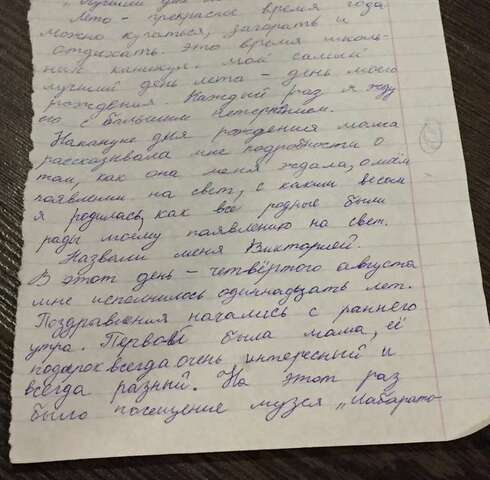 „Лучший день
Лето - прекрасное время года
можно купаться, загорать и
отдыхать. Это время школь-
ных каникул. Мой самый
лучший день лета - день моего
рождения. Каждый раз я жду
его с большим нетерпением.
Накануне дня рождения мама
рассказывала мне подробности о
том, как она меня ждала, о моём
появлении на свет, с каким весом
я родилась, как все родные были
рады моему появлению на свет.
Назвали меня Викторией.
В этот день - четвёртого августа
мне исполнилось одиннадцать лет.
Поздравления начались с раннего
утра. Первой была мама, её
подарок всегда очень интересный и
всегда разный. На этот раз
было посещение музея „Лаборато-